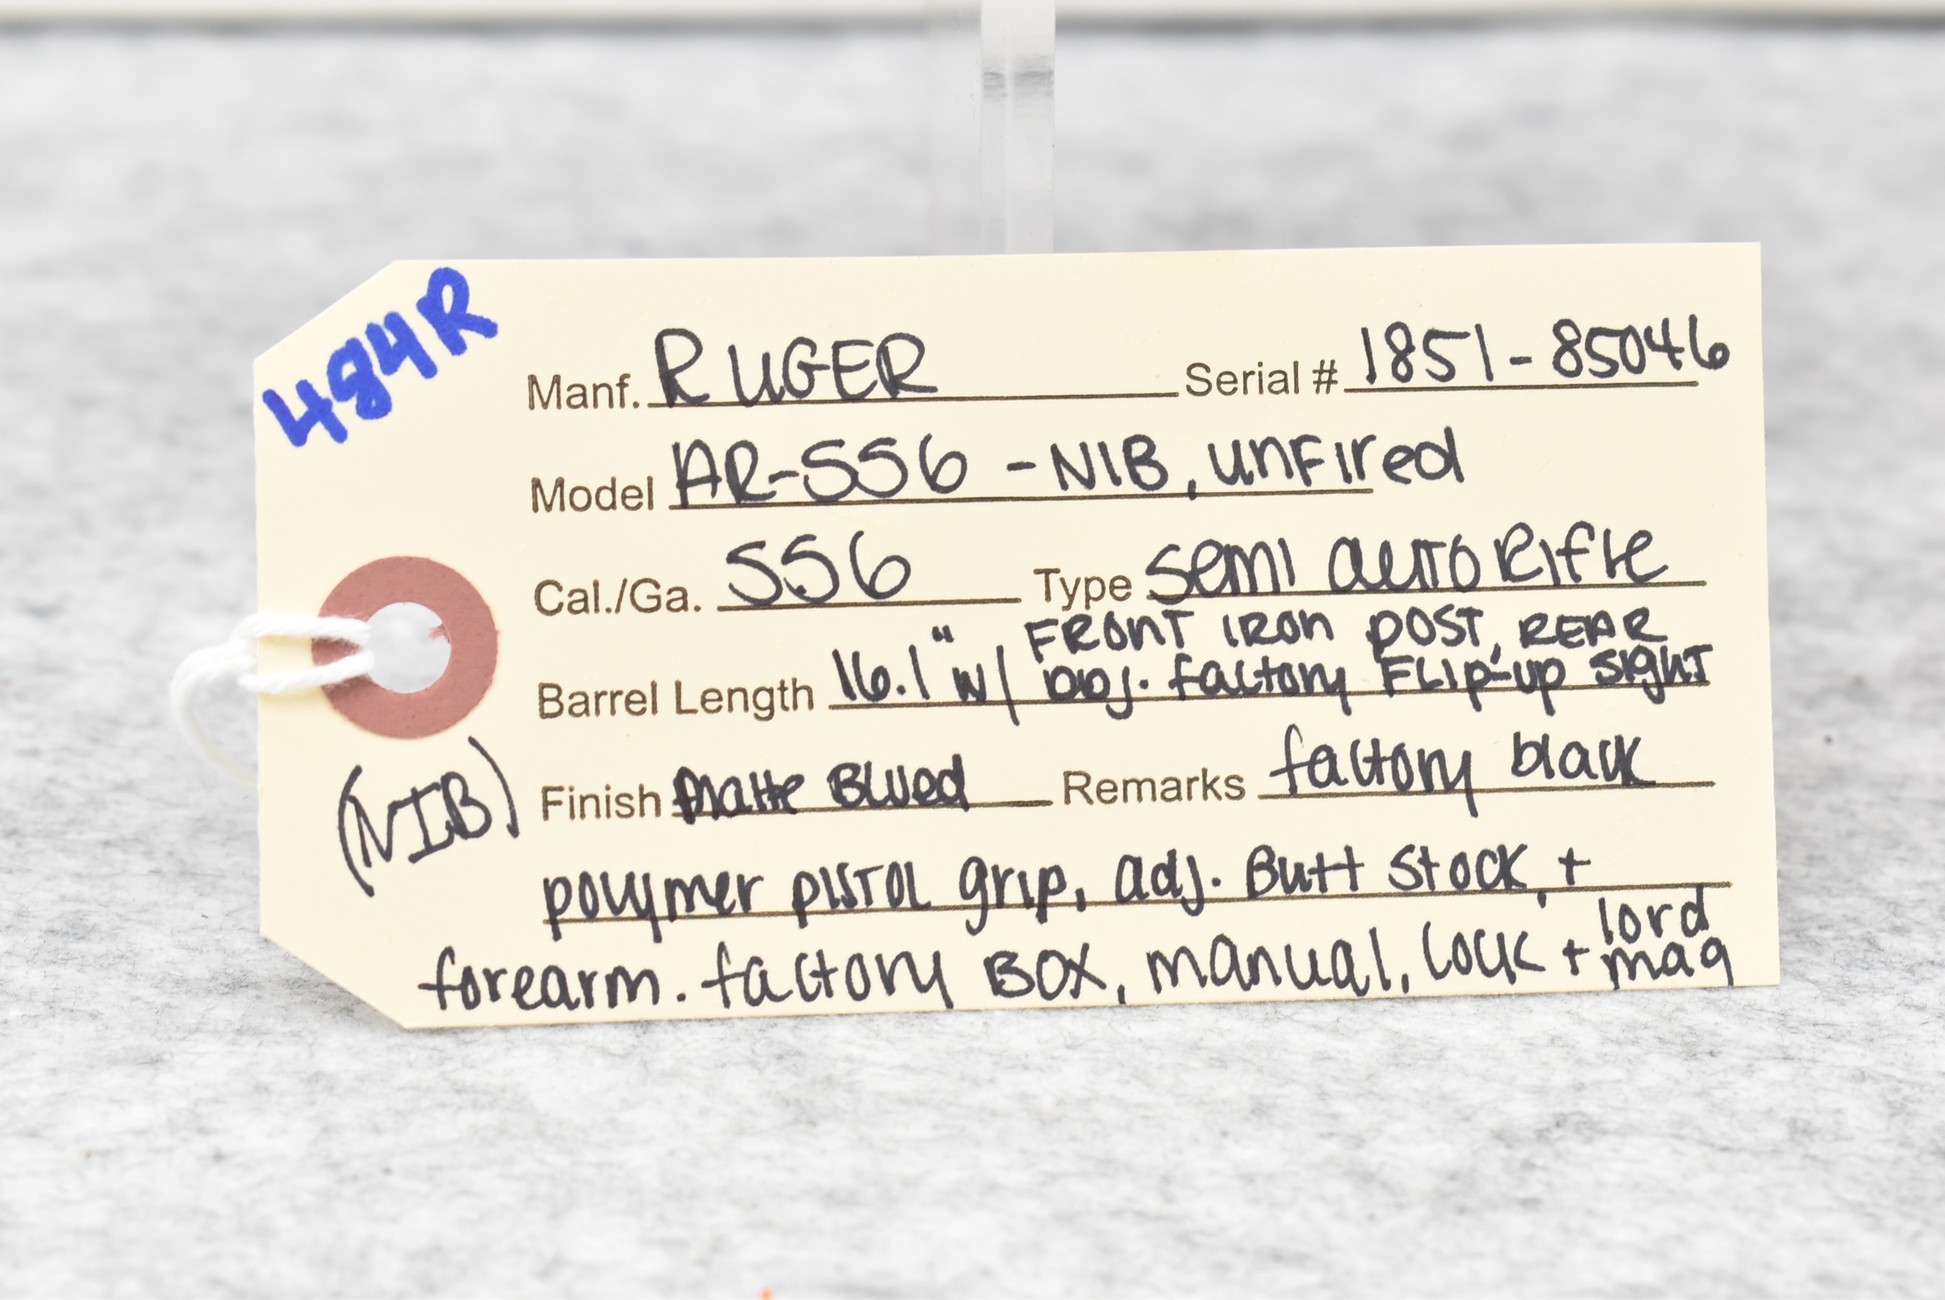 484R
Manf. RUGER Serial # 1851-85046
Model AR-556 - NIB, unfired
Cal./Ga. 556 Type semi auto Rifle
FRONT IRON POST, REAR
Barrel Length 16.1" w/ adj. factory FLIP-UP SIGHT
(NIB)
Finish matte Blued Remarks factory black
polymer pistol grip, adj. Butt Stock, +
forearm. factory BOX, manual, lock + lord mag